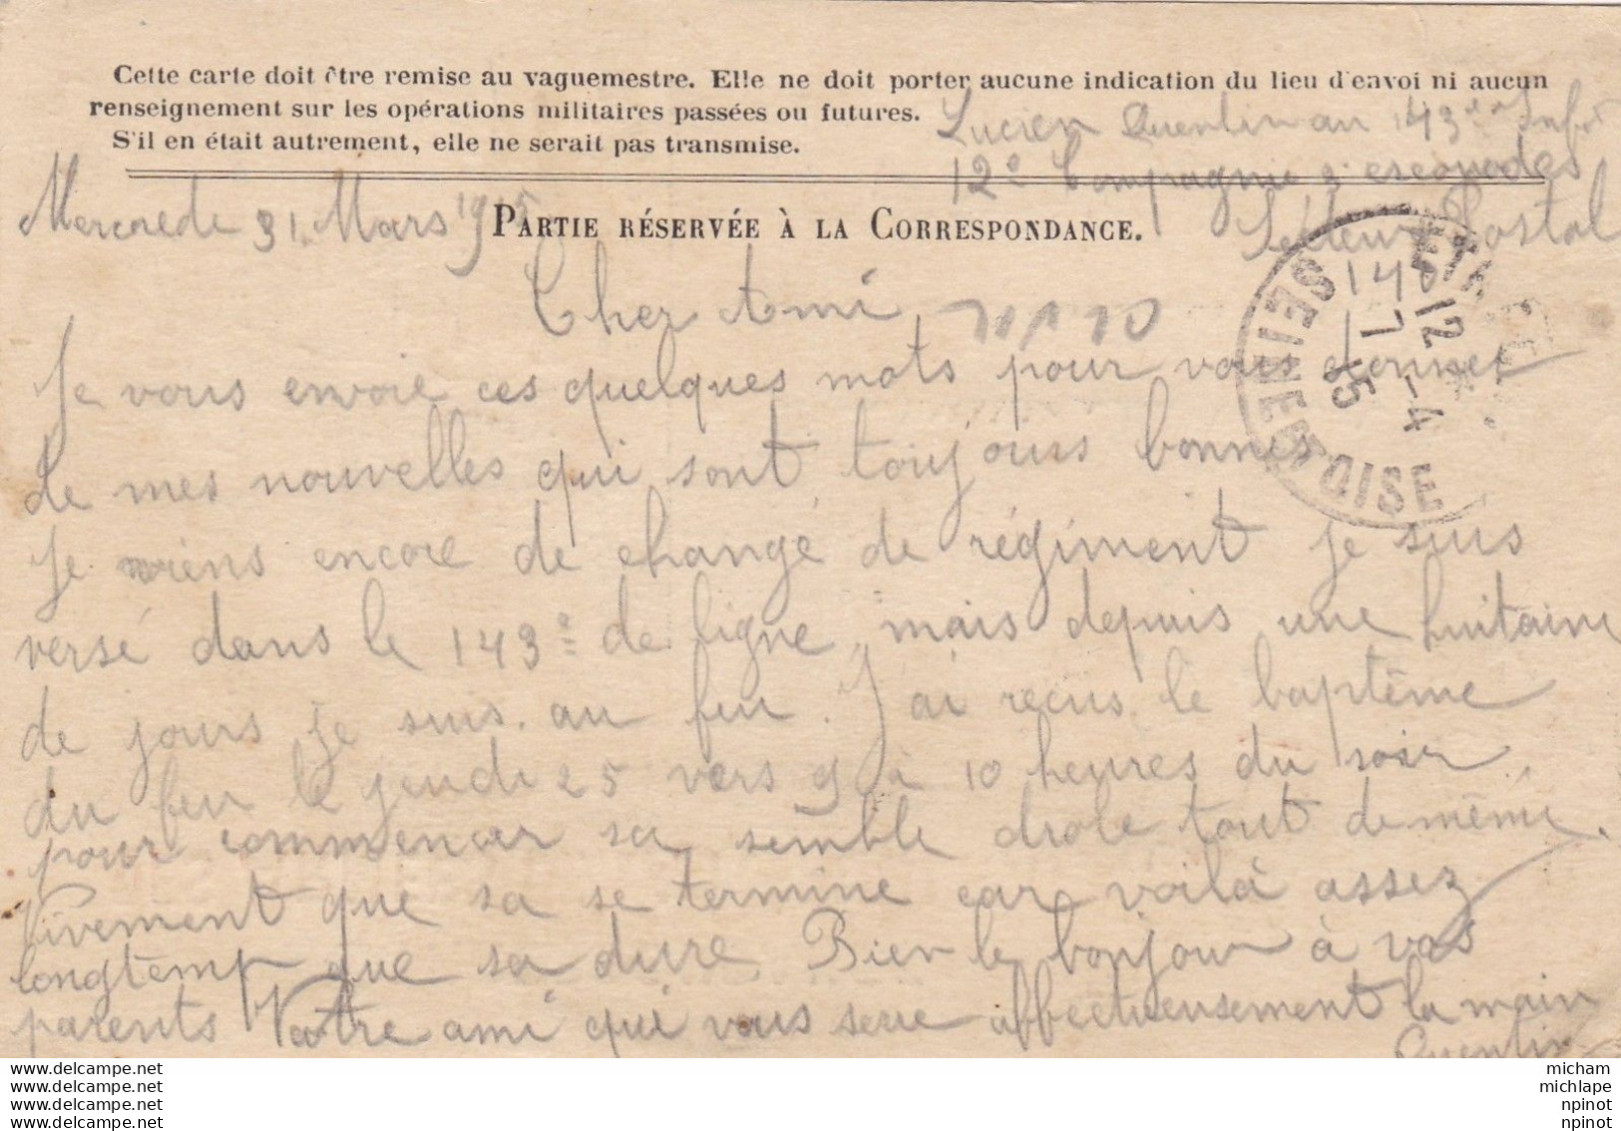 Cette carte doit être remise au vaguemestre. Elle ne doit porter aucune indication du lieu d'envoi ni aucun
renseignement sur les opérations militaires passées ou futures.
S'il en était autrement, elle ne serait pas transmise.
Lucien Quentin au 143e Inf
12e Compagnie 3 escouades
Secteur Postal
140
Mercrede 31 Mars 1915
PARTIE RÉSERVÉE À LA CORRESPONDANCE.
SEINE ET OISE
12 -4
7 15
Cher Ami
Je vous envoie ces quelques mots pour vous donner
de mes nouvelles qui sont toujours bonnes
Je viens encore de changé de régiment je suis
versé dans le 143e de ligne, mais depuis une huitaine
de jours je suis au feu. J'ai recus le baptême
du feu le jeudi 25 vers 9 à 10 heures du soir
pour commencer sa semble drole tout de même.
Vivement que sa se termine car voilà assez
longtemp que sa dure. Bien le bonjour à vos
parents Votre ami qui vous serre affectueusement la main
Quentin
www.delcampe.net
www.delcampe.net
www.delcampe.net
www.delcampe.net
micham
michlape
npinot
npinot